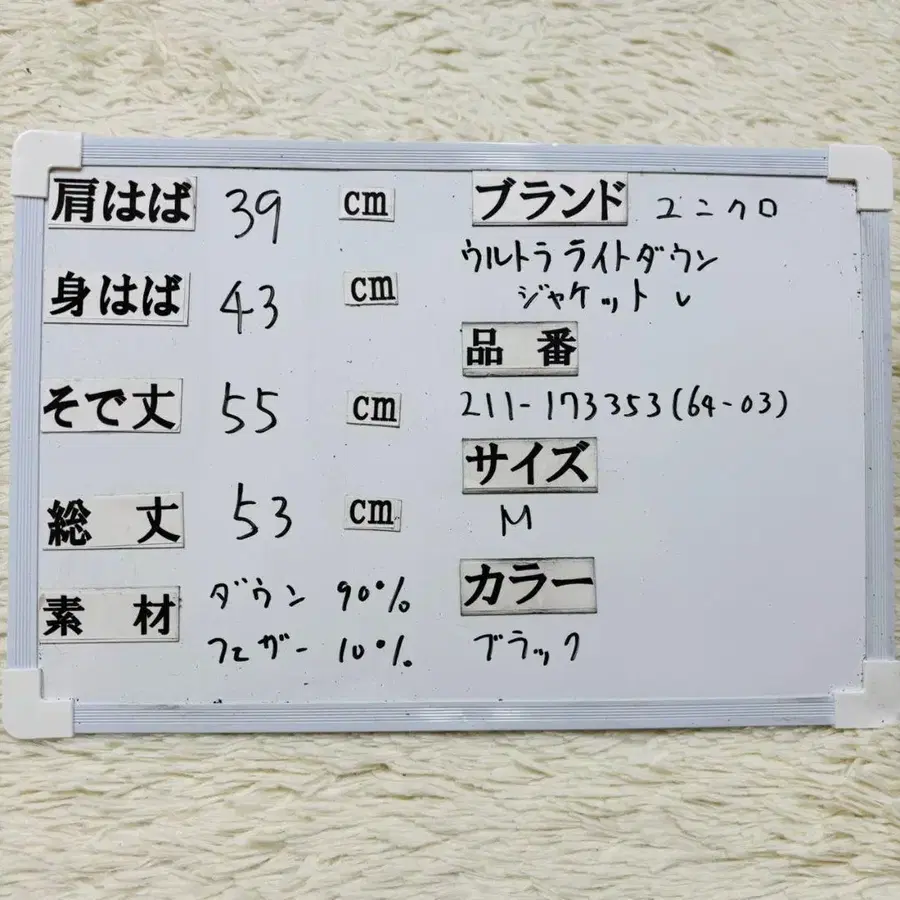 肩はば 39 cm
身はば 43 cm
そで丈 55 cm
総丈 53 cm
素材 ダウン 90%
フェザー 10%
ブランド ユニクロ
ウルトラライトダウン
ジャケット
品番
211-173353(64-03)
サイズ
M
カラー
ブラック